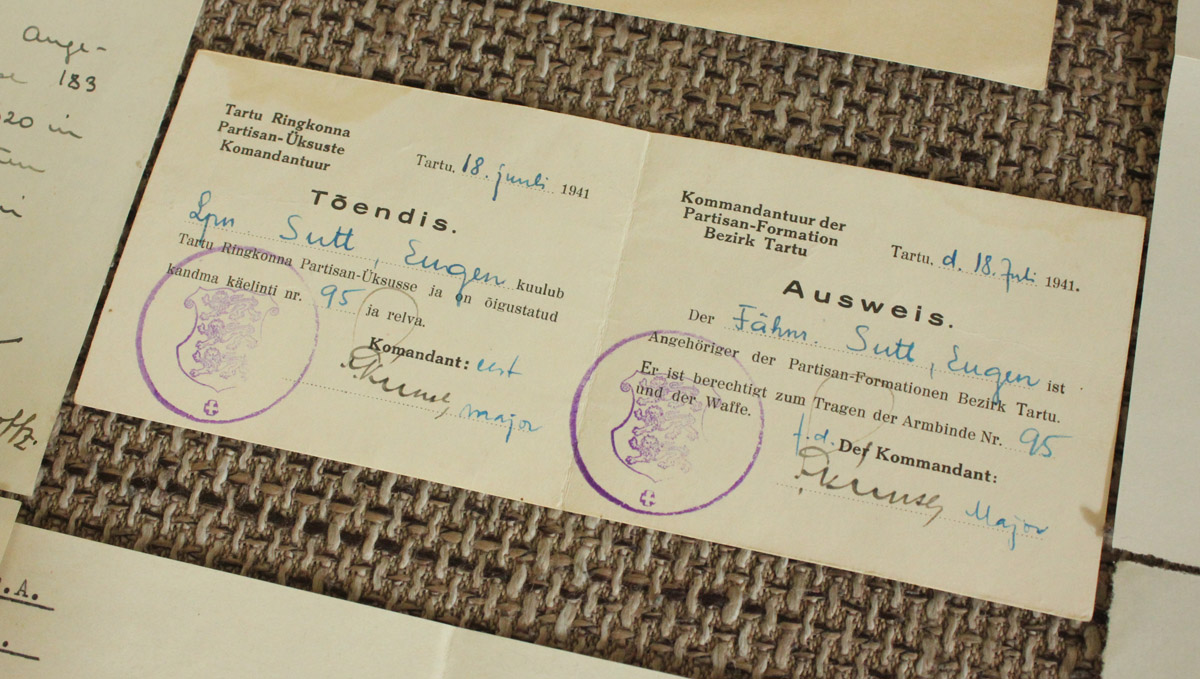 Ange-
183
20 in
Tartu Ringkonna
Partisan-Üksuste
Komandantuur
Tartu, 18. juuli 1941
Tõendis.
Lpn. Sutt, Eugen kuulub
Tartu Ringkonna Partisan-Üksusse ja on õigustatud
kandma käelinti nr. 95 ja relva.
Komandant: eest
major
Kommandantuur der
Partisan-Formation
Bezirk Tartu
Tartu, d. 18. Juli 1941.
Ausweis.
Der Fähnr. Sutt, Eugen ist
Angehöriger der Partisan-Formationen Bezirk Tartu.
Er ist berechtigt zum Tragen der Armbinde Nr. 95
und der Waffe.
f. d. Der Kommandant:
Major
.A.